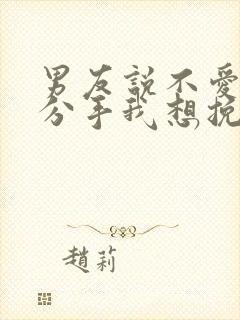 男友說不愛
分手我想挽
趙莉